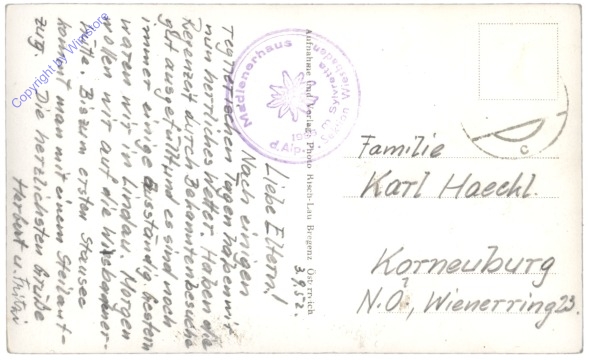 Copyright by Winstore
Madlenerhaus
Aufnahme und Verlag: Photo Risch-Lau Bregenz, Österreich
3.9.52.
Liebe Eltern!
Nach einigen
regnerischen Tagen haben wir
nun herrliches Wetter. Haben die
Regenzeit durch Bekanntenbesuche
gut ausgefüllt und es sind noch
immer einige ausständig. Gestern
waren wir in Lindau. Morgen
wollen wir auf die Wiesbadener-
hütte. Bis zum ersten Stausee
kommt man mit einem Steilauf-
zug. Die herzlichsten Grüße
Herbert u.
Familie
Karl Haeckl.
Korneuburg
N.Ö., Wienerring 23.